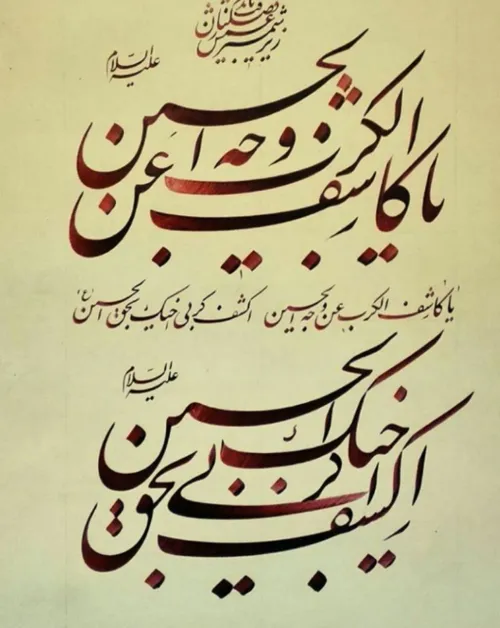 علیه السلام
یا کاشف الکرب عن وجه الحسین
یا کاشف الکرب عن وجه الحسین اکشف کربی بحق اخیک الحسین (ع)
علیه السلام
اکشف کربی بحق اخیک الحسین